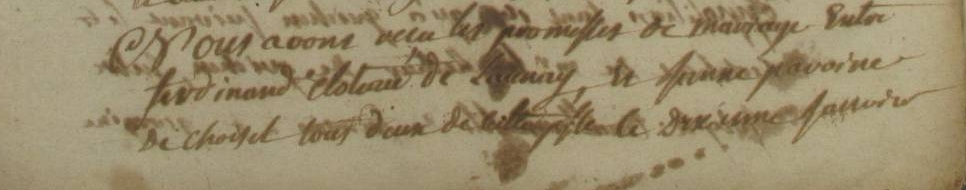 Nous avons recu les promesses de mariage Entre
ferdinand Clotaire de Launay, et jeanne pavoine
de choisel tous deux de cette ville le dixieme janvier